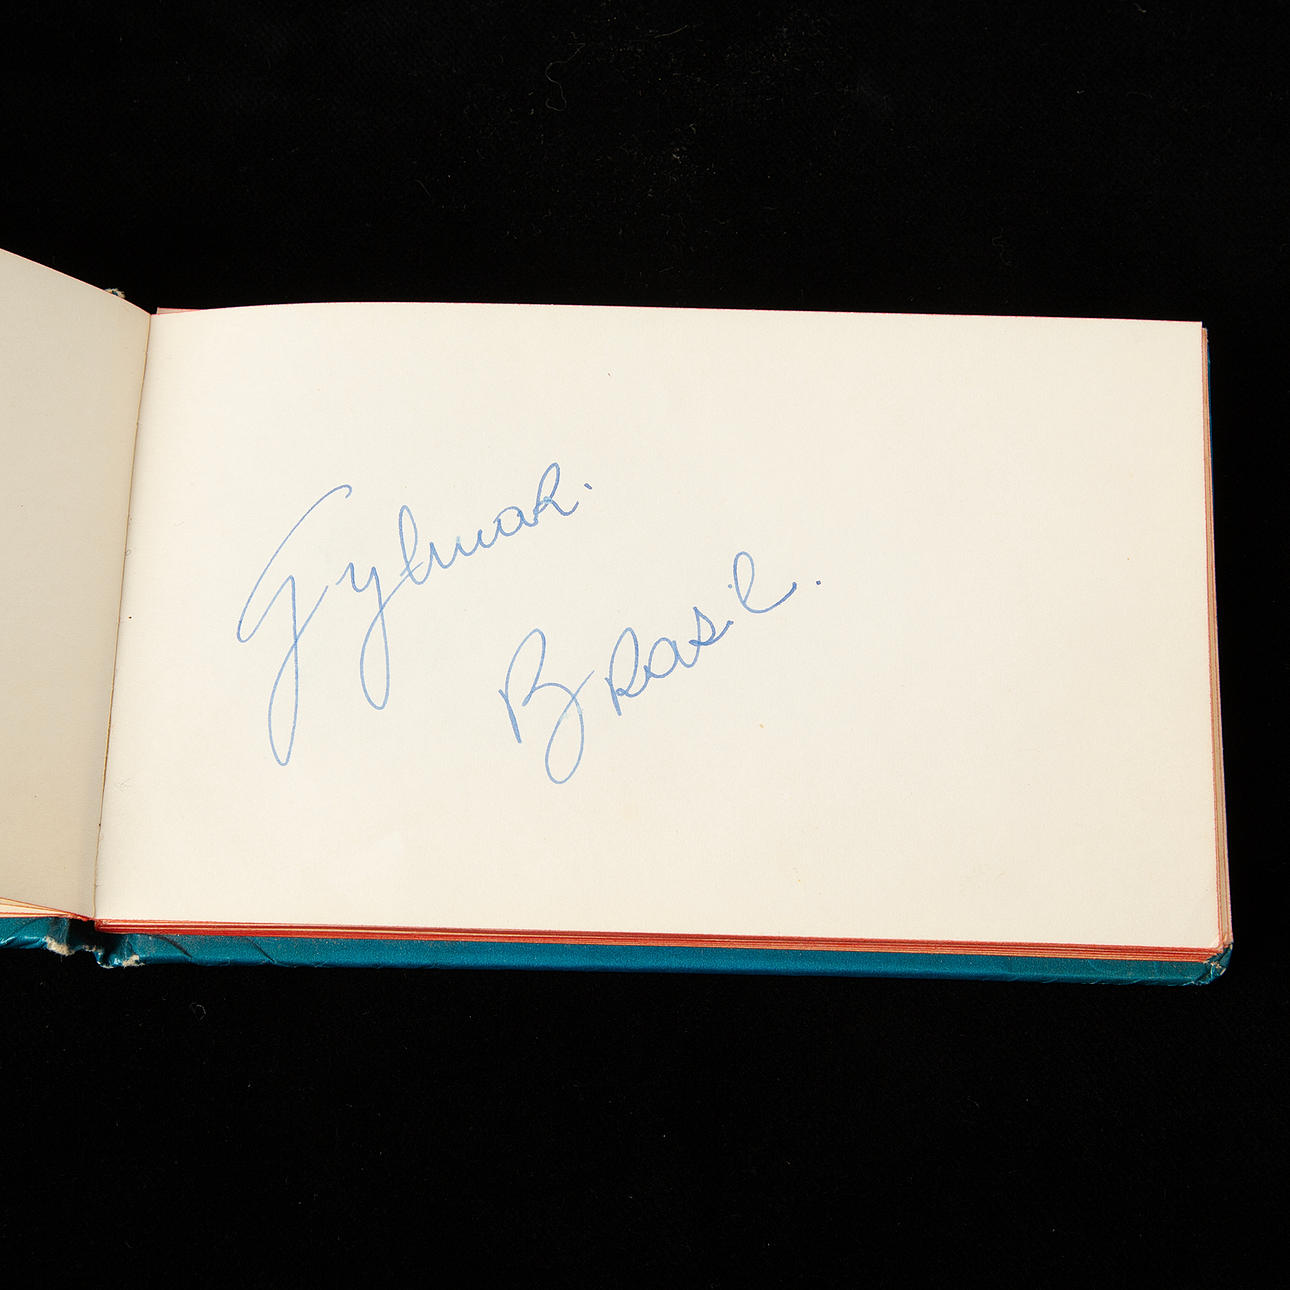 Gylmar.
Brasil.